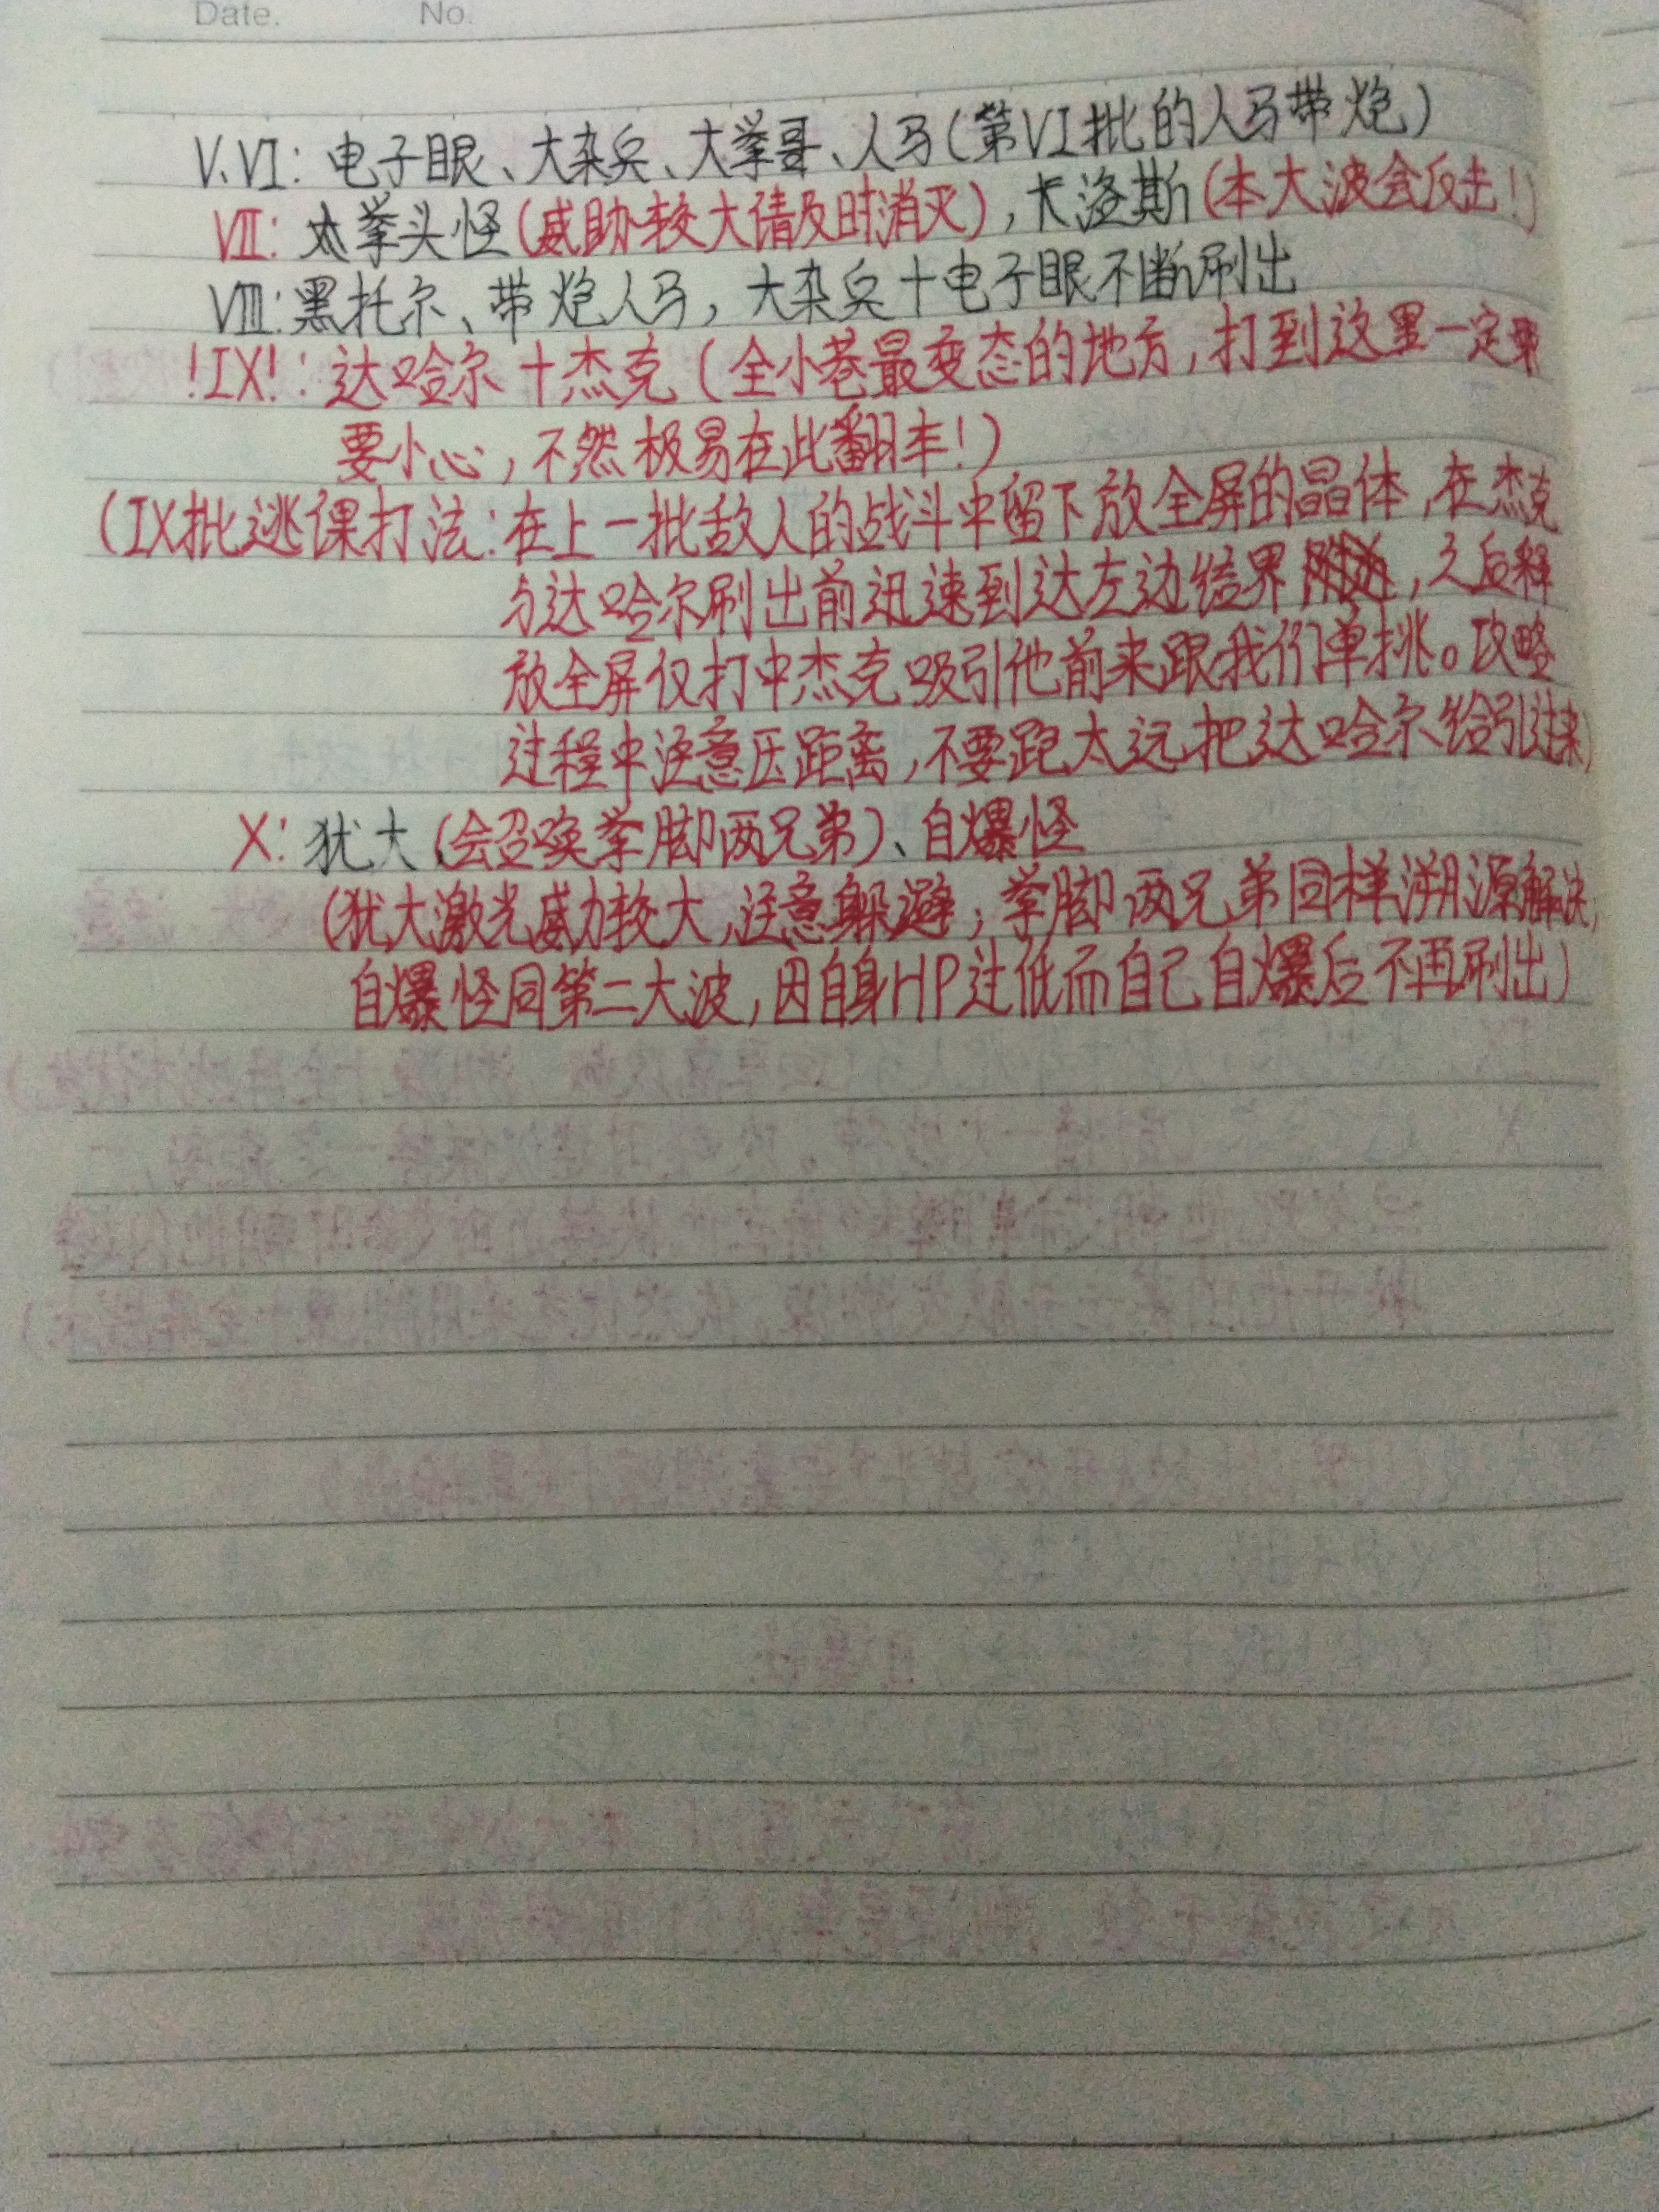 Date. No.
V、VI：电子眼、大杂兵、大拳哥、人马（第VI批的人马带炮）
VII：大拳头怪（威胁较大请及时消灭），卡洛斯（本大波会反击！）
VIII：黑托尔、带炮人马，大杂兵＋电子眼不断刷出
！IX！：达哈尔＋杰克（全小巷最变态的地方，打到这里一定
要小心，不然极易在此翻车！）
（IX批逃课打法：在上一批敌人的战斗中留下放全屏的晶体，在杰克
与达哈尔刷出前迅速到达左边结界，之后释
放全屏仅打中杰克吸引他前来跟我们单挑。攻略
过程中注意压距离，不要跑太远把达哈尔给引过来）
X：犹大（会召唤拳脚两兄弟）、自爆怪
（犹大激光威力较大，注意躲避；拳脚两兄弟同样溯源解决；
自爆怪同第二大波，因自身HP过低而自己自爆后不再刷出）